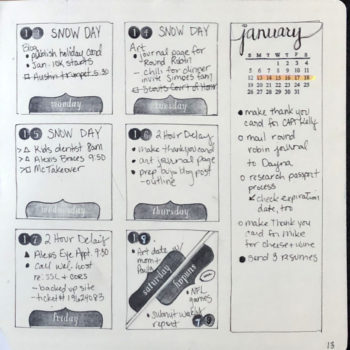 13 SNOW DAY
Blog
publish holiday card
Jan-10K starts
Austin trumpet 5:30
monday
14 SNOW DAY
Art
journal page for
Round Robin
- chili for dinner
invite Simpo's fam?
Scouts Court of Honor
tuesday
15 SNOW DAY
Kids dentist 8am
Alexis Braces 9:50
McTakeover
wednesday
16 2 Hour Delay
make thank you card
art journal page
prep bujo blog post
- outline
thursday
17 2 Hour Delay
Alexis Eye Appt. 9:50
Call web host
re: SSL &
- backed up site
- ticket#
friday
18
Art date w/
mom +
Paula
saturday
sunday
NFL
games
Submit weekly
report
19
january
S M T W T F S
1 2 3 4
5 6 7 8 9 10 11
12 13 14 15 16 17 18
19 20 21 22 23 24 25
26 27 28 29 30 31
make thank you
card for Capt Kelly
mail round
robin journal
to Dayna
research passport
process
check expiration
date, too
make Thank you
card for Mike
for cheese + wine
send 3 resumes
13